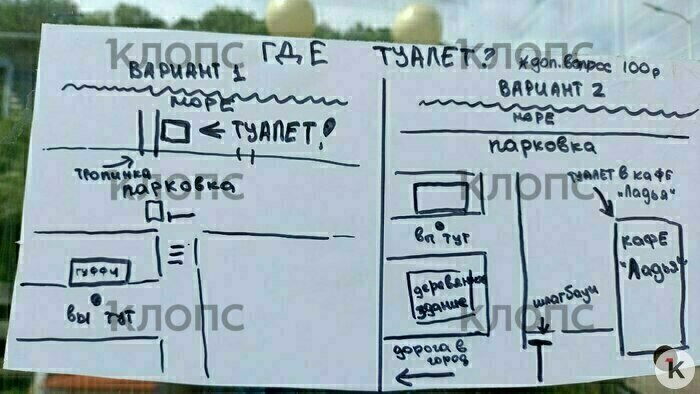 ГДЕ ТУАЛЕТ?
ВАРИАНТ 1
МОРЕ
ТУАЛЕТ!
ТРОПИНКА
ПАРКОВКА
ГУФФИ
ВЫ ТУТ
*доп. вопрос 100р
ВАРИАНТ 2
МОРЕ
ПАРКОВКА
ТУАЛЕТ В КАФЕ
"Ладья"
ВЫ ТУТ
КАФЕ
"Ладья"
деревянное
здание
шлагбаум
дорога в
город
КЛОПС
КЛОПС
КЛОПС
КЛОПС
КЛОПС
КЛОПС
К